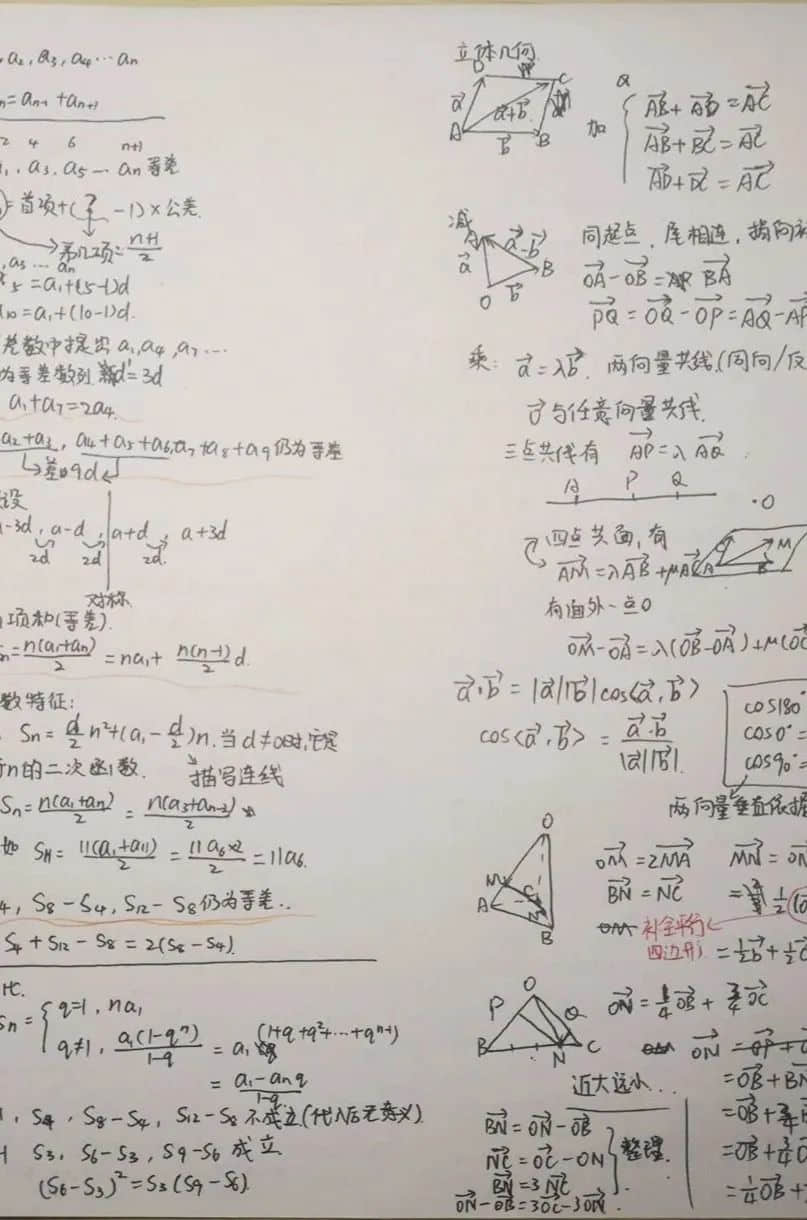 a₂, a₃, a₄…aₙ
=aₙ₋₁+aₙ₊₁
2 4 6 n+1
a₃, a₅…aₙ等差
=首项+(?-1)×公差
第几项=\frac{n+1}{2}
a₃…aₙ
₅=a₁+(5-1)d
a₁₀=a₁+(10-1)d.
差数中提出a₁,a₄,a₇…
为等差数列 新d'=3d
a₁+a₇=2a₄.
a₂+a₃, a₄+a₅+a₆, a₇+a₈+a₉仍为等差
差为9d
设
a-3d, a-d, a+d, a+3d
2d 2d 2d
对称
项和(等差).
=\frac{n(a₁+aₙ)}{2}=na₁+\frac{n(n-1)}{2}d.
数特征:
Sₙ=\frac{d}{2}n²+(a₁-\frac{d}{2})n.当d≠0时,它是
n的二次函数. 描写连线
Sₙ=\frac{n(a₁+aₙ)}{2}=\frac{n(a₃+aₙ₋₂)}{2}
如 S₁₁=\frac{11(a₁+a₁₁)}{2}=\frac{11a₆×2}{2}=11a₆.
₄, S₈-S₄, S₁₂-S₈仍为等差..
S₄+S₁₂-S₈=2(S₈-S₄).
比.
Sₙ={q=1, na₁
q≠1, \frac{a₁(1-qⁿ)}{1-q}=a₁(1+q+q²+…+qⁿ⁻¹)
=\frac{a₁-aₙq}{1-q}
S₄, S₈-S₄, S₁₂-S₈不成立(代入后无意义).
S₃, S₆-S₃, S₉-S₆成立
(S₆-S₃)²=S₃(S₉-S₆)
立体几何.
D C
\vec{a} \vec{a}+\vec{b}
A \vec{b} B
加
\vec{AB}+\vec{AD}=\vec{AC}
\vec{AB}+\vec{BC}=\vec{AC}
\vec{AD}+\vec{DC}=\vec{AC}
减
A \vec{a}-\vec{b}
\vec{a} B
O \vec{b}
同起点, 尾相连, 指向
\vec{OA}-\vec{OB}=\vec{BA}
\vec{PQ}=\vec{OQ}-\vec{OP}=\vec{AQ}-\vec{AP}
乘: \vec{a}=λ\vec{b}. 两向量共线.(同向/反
\vec{0}与任意向量共线.
三点共线有 \vec{AP}=λ\vec{AQ}.
A P Q
·O
四点共面, 有
\vec{AM}=λ\vec{AB}+μ\vec{AC}
A B M
有面外一点O
\vec{OM}-\vec{OA}=λ(\vec{OB}-\vec{OA})+μ(\vec{OC}
\vec{a}·\vec{b}=|\vec{a}||\vec{b}|cos⟨\vec{a},\vec{b}⟩
cos⟨\vec{a},\vec{b}⟩=\frac{\vec{a}·\vec{b}}{|\vec{a}||\vec{b}|}.
cos180°
cos0°=
cos90°=
两向量垂直依据
O
M
A C N
B
\vec{OM}=2\vec{MA} \vec{MN}=\vec{ON}
\vec{BN}=\vec{NC}
补全平行
四边形
=\frac{1}{2}\vec{b}+\frac{1}{2}\vec{c}
O
P Q
B N C
\vec{ON}=\frac{1}{4}\vec{OB}+\frac{3}{4}\vec{OC}
近大远小...
\vec{ON}=
=\vec{OB}+\vec{BN}
=\vec{OB}+\frac{3}{4}
=\vec{OB}+\frac{3}{4}
=\frac{1}{4}\vec{OB}+
\vec{BN}=\vec{ON}-\vec{OB}
\vec{NC}=\vec{OC}-ON
\vec{BN}=3\vec{NC}
\vec{ON}-\vec{OB}=3\vec{OC}-3\vec{ON}.
整理.